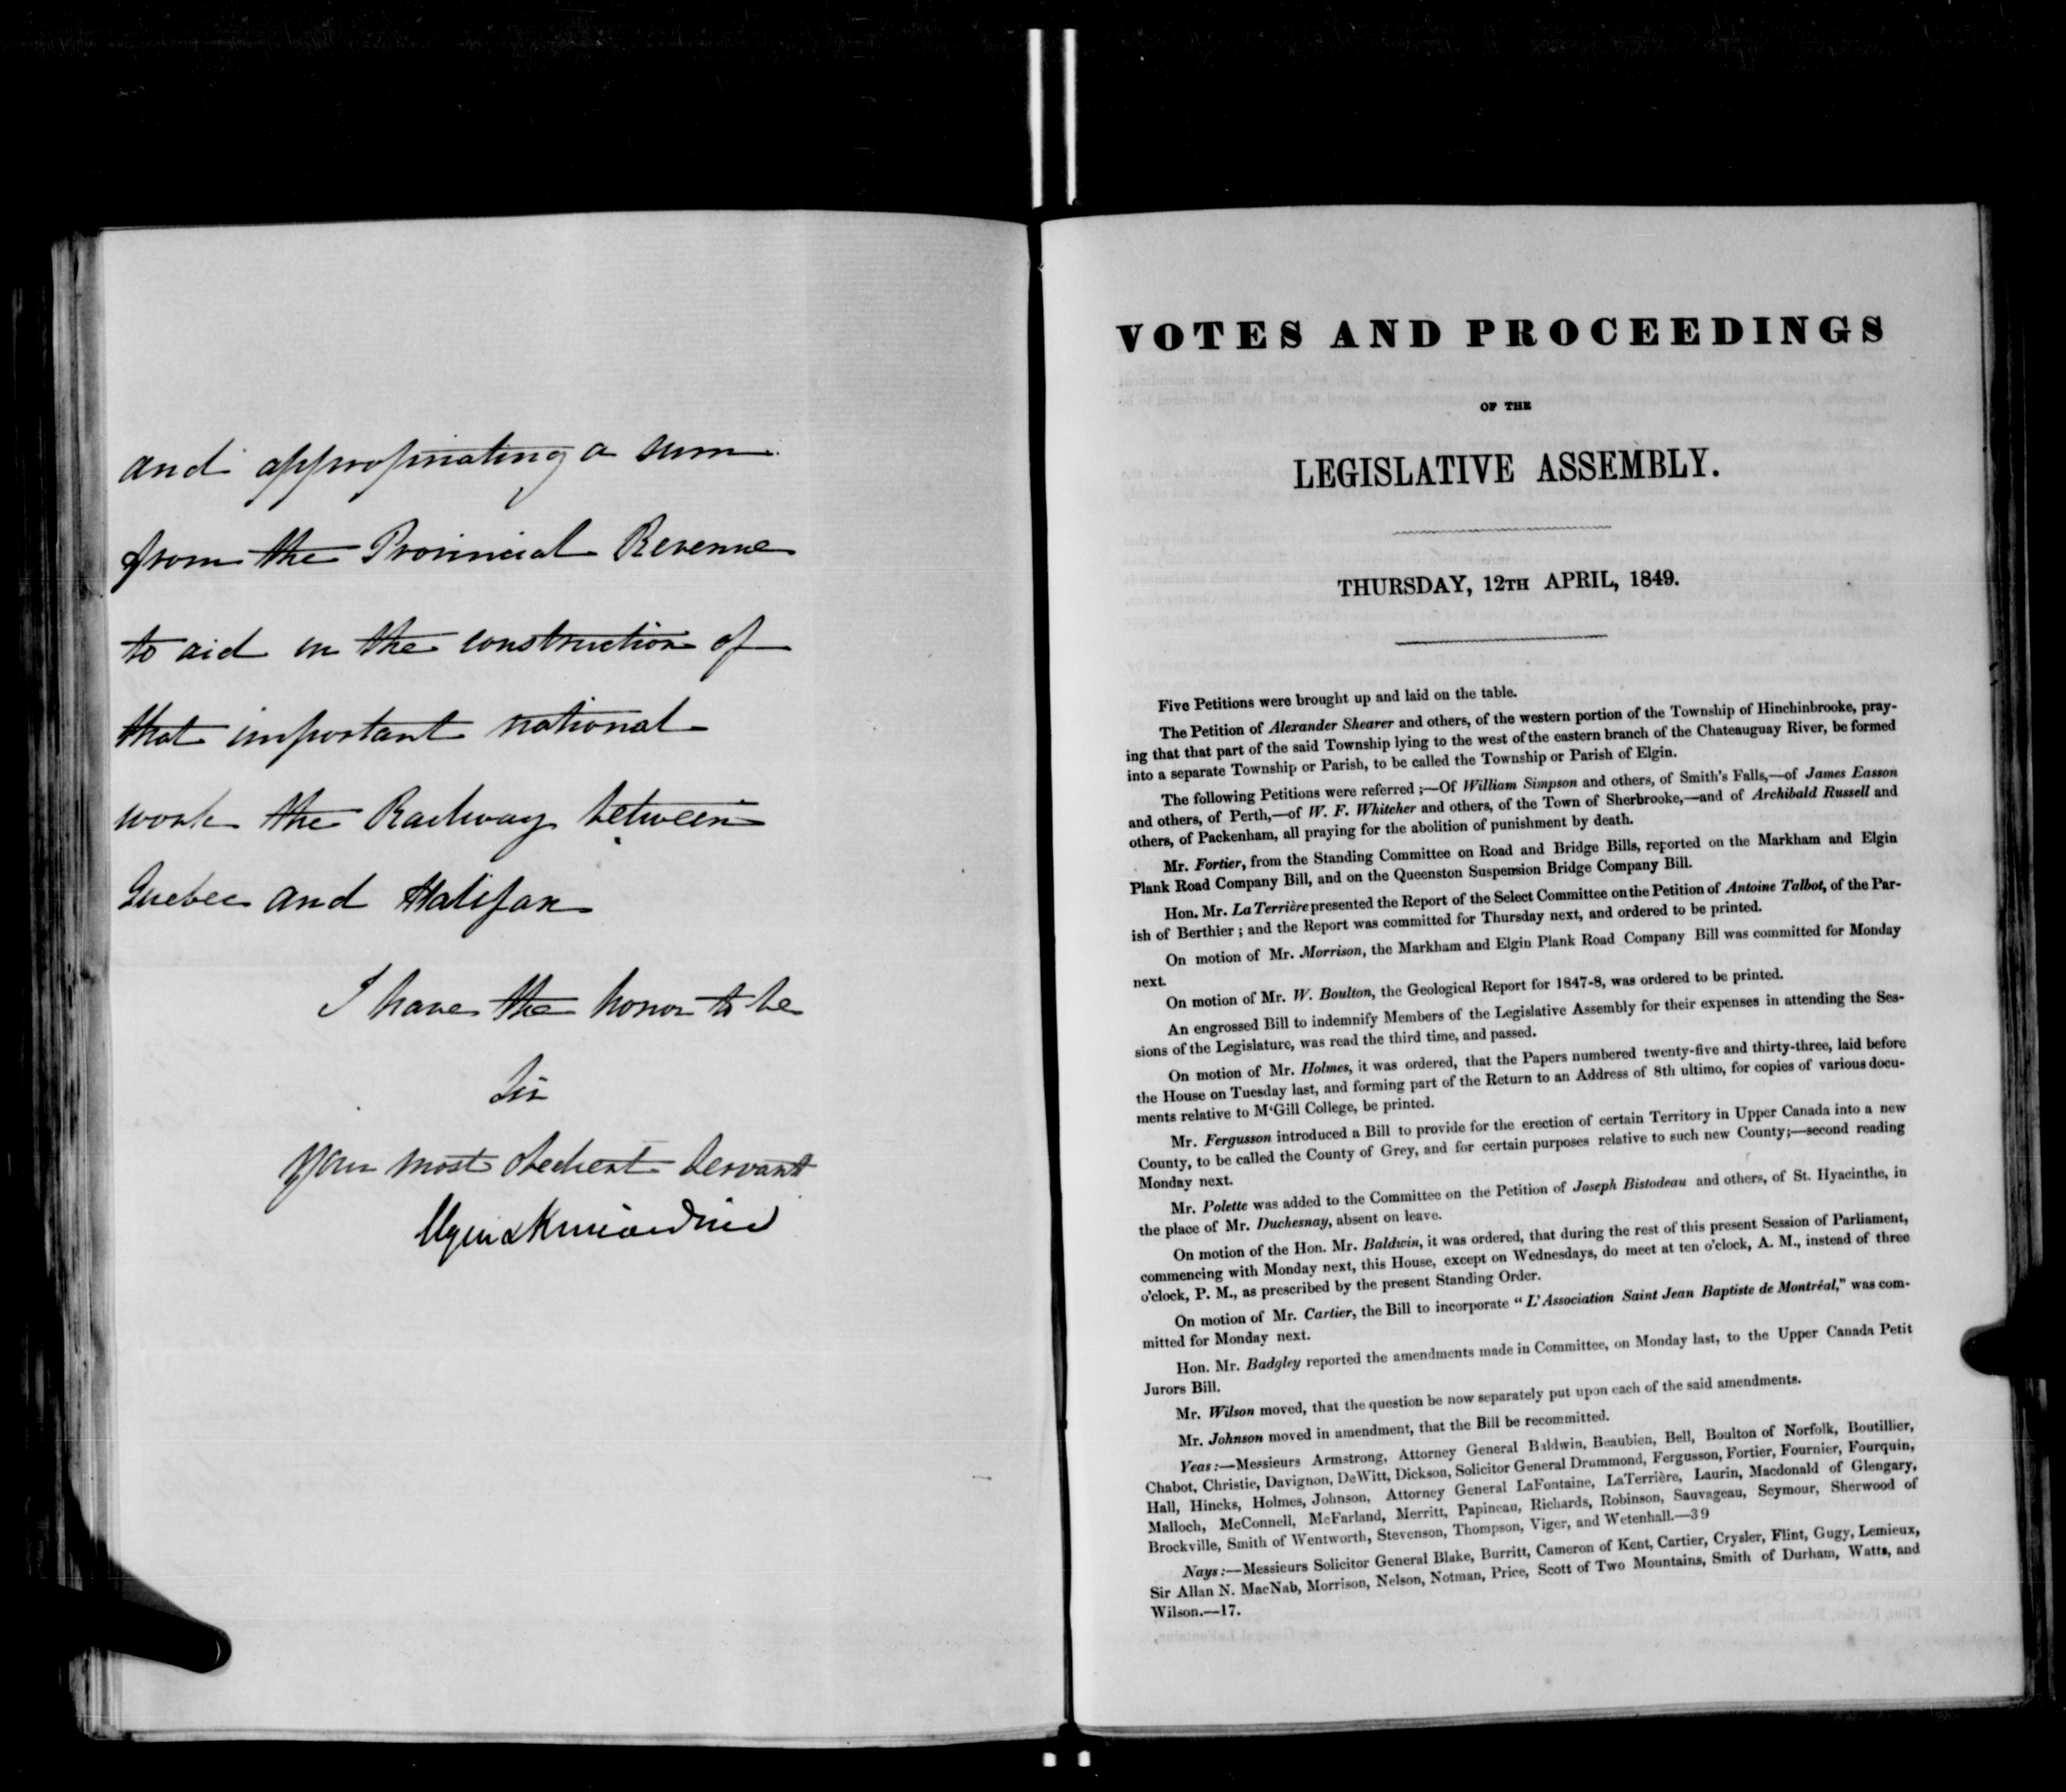 and appropriating a sum
from the Provincial Revenue
to aid in the construction of
that important national
work the Railway between
Quebec and Halifax
I have the honor to be
Sir
Your most obedient Servant
Elgin & Kincardine
VOTES AND PROCEEDINGS
OF THE
LEGISLATIVE ASSEMBLY.
THURSDAY, 12TH APRIL, 1849.
Five Petitions were brought up and laid on the table.
The Petition of Alexander Shearer and others, of the western portion of the Township of Hinchinbrooke, pray-
ing that that part of the said Township lying to the west of the eastern branch of the Chateauguay River, be formed
into a separate Township or Parish, to be called the Township or Parish of Elgin.
The following Petitions were referred ;—Of William Simpson and others, of Smith's Falls,—of James Easson
and others, of Perth,—of W. F. Whitcher and others, of the Town of Sherbrooke,—and of Archibald Russell and
others, of Packenham, all praying for the abolition of punishment by death.
Mr. Fortier, from the Standing Committee on Road and Bridge Bills, reported on the Markham and Elgin
Plank Road Company Bill, and on the Queenston Suspension Bridge Company Bill.
Hon. Mr. LaTerrière presented the Report of the Select Committee on the Petition of Antoine Talbot, of the Par-
ish of Berthier ; and the Report was committed for Thursday next, and ordered to be printed.
On motion of Mr. Morrison, the Markham and Elgin Plank Road Company Bill was committed for Monday
next.
On motion of Mr. W. Boulton, the Geological Report for 1847-8, was ordered to be printed.
An engrossed Bill to indemnify Members of the Legislative Assembly for their expenses in attending the Ses-
sions of the Legislature, was read the third time, and passed.
On motion of Mr. Holmes, it was ordered, that the Papers numbered twenty-five and thirty-three, laid before
the House on Tuesday last, and forming part of the Return to an Address of 8th ultimo, for copies of various docu-
ments relative to M'Gill College, be printed.
Mr. Fergusson introduced a Bill to provide for the erection of certain Territory in Upper Canada into a new
County, to be called the County of Grey, and for certain purposes relative to such new County;—second reading
Monday next.
Mr. Polette was added to the Committee on the Petition of Joseph Bistodeau and others, of St. Hyacinthe, in
the place of Mr. Duchesnay, absent on leave.
On motion of the Hon. Mr. Baldwin, it was ordered, that during the rest of this present Session of Parliament,
commencing with Monday next, this House, except on Wednesdays, do meet at ten o'clock, A. M., instead of three
o'clock, P. M., as prescribed by the present Standing Order.
On motion of Mr. Cartier, the Bill to incorporate “ L'Association Saint Jean Baptiste de Montréal,” was com-
mitted for Monday next.
Hon. Mr. Badgley reported the amendments made in Committee, on Monday last, to the Upper Canada Petit
Jurors Bill.
Mr. Wilson moved, that the question be now separately put upon each of the said amendments.
Mr. Johnson moved in amendment, that the Bill be recommitted.
Yeas:—Messieurs Armstrong, Attorney General Baldwin, Beaubien, Bell, Boulton of Norfolk, Boutillier,
Chabot, Christie, Davignon, DeWitt, Dickson, Solicitor General Drummond, Fergusson, Fortier, Fournier, Fourquin,
Hall, Hincks, Holmes, Johnson, Attorney General LaFontaine, LaTerrière, Laurin, Macdonald of Glengary,
Malloch, McConnell, McFarland, Merritt, Papineau, Richards, Robinson, Sauvageau, Seymour, Sherwood of
Brockville, Smith of Wentworth, Stevenson, Thompson, Viger, and Wetenhall.—39
Nays:—Messieurs Solicitor General Blake, Burritt, Cameron of Kent, Cartier, Crysler, Flint, Gugy, Lemieux,
Sir Allan N. MacNab, Morrison, Nelson, Notman, Price, Scott of Two Mountains, Smith of Durham, Watts, and
Wilson.—17.